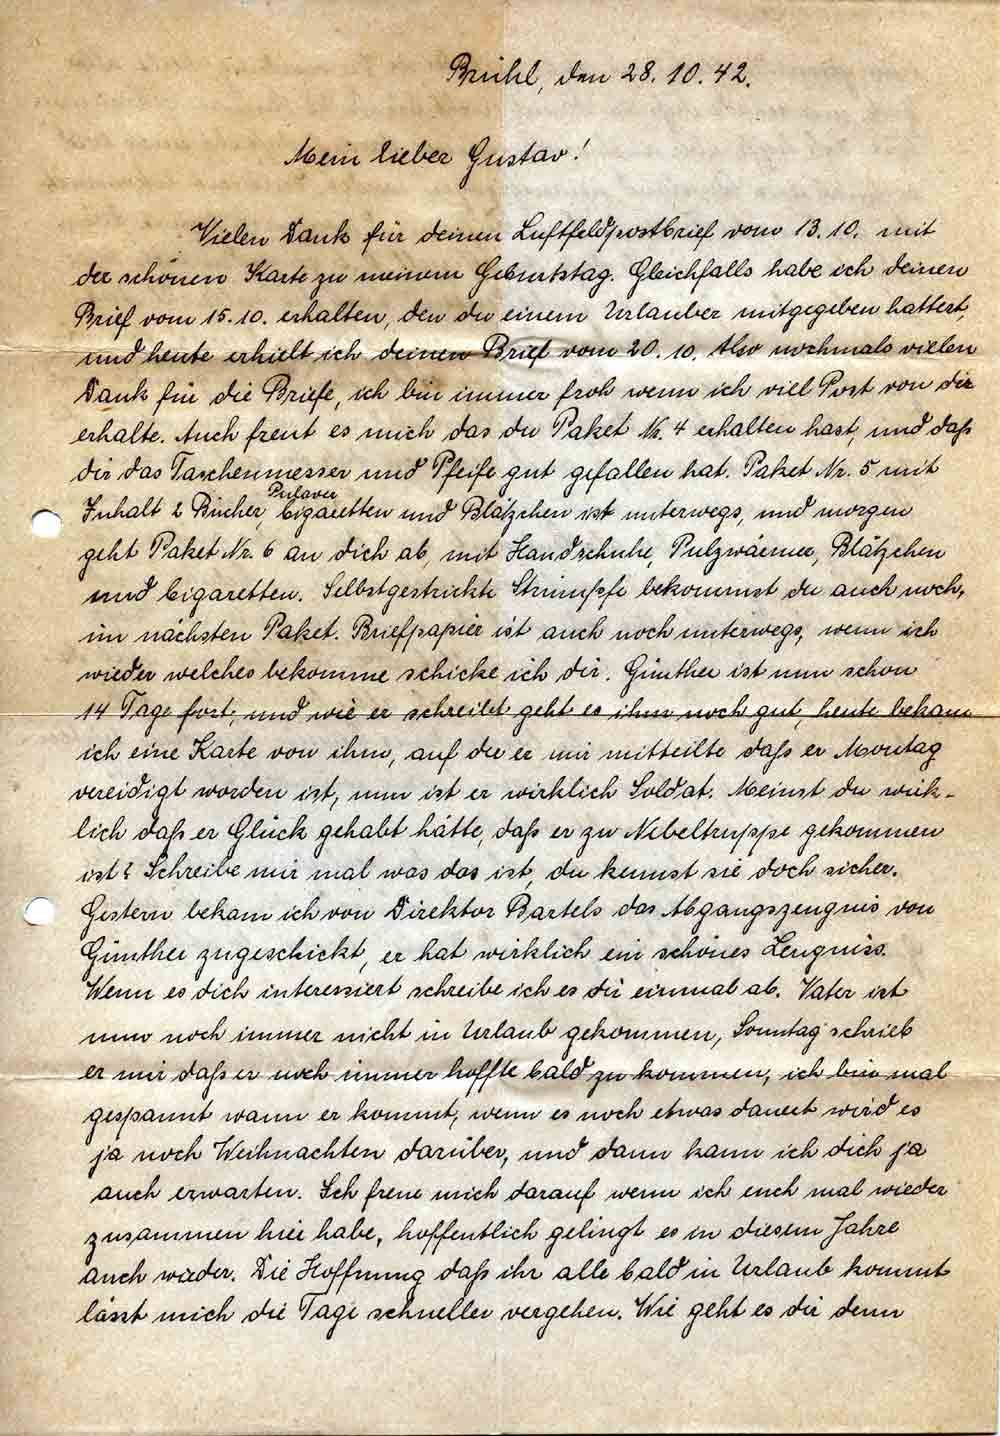 Brühl, den 28. 10. 42.
Mein lieber Gustav!
Vielen Dank für deinen Luftfeldpostbrief vom 13. 10. mit
der schönen Karte zu meinem Geburtstag. Gleichfalls habe ich deinen
Brief vom 15. 10. erhalten, den du einem Urlauber mitgegeben hattest,
und heute erhielt ich deinen Brief vom 20. 10. Also nochmals vielen
Dank für die Briefe, ich bin immer froh wenn ich viel Post von dir
erhalte. Auch freut es mich das du Paket Nr. 4 erhalten hast, und daß
dir das Taschenmesser und Pfeife gut gefallen hat. Paket Nr. 5 mit
Pulover
Inhalt 2 Bücher, Cigaretten und Blätzchen ist unterwegs, und morgen
geht Paket Nr. 6 an dich ab, mit Handschuhe, Pulzwärmer, Blätzchen
und Cigaretten. Selbstgestrickte Strümpfe bekommst du auch noch,
im nächsten Paket. Briefpapier ist auch noch unterwegs, wenn ich
wieder welches bekomme schicke ich dir. Günther ist nun schon
14 Tage fort, und wie er schreibt geht es ihm noch gut, heute bekam
ich eine Karte von ihm, auf der er mir mitteilte daß er Montag
vereidigt worden ist, nun ist er wirklich Soldat. Meinst du wirk-
lich daß er Glück gehabt hätte, daß er zu Nebeltruppe gekommen
ist? Schreibe mir mal was das ist, du kennst sie doch sicher.
Gestern bekam ich von Direktor Bartels das Abgangszeugnis von
Günther zugeschickt, er hat wirklich ein schönes Zeugniss.
Wenn es dich interessiert schreibe ich es dir einmal ab. Vater ist
nun noch immer nicht in Urlaub gekommen, Sonntag schrieb
er mir daß er noch immer hoffte bald zu kommen, ich bin mal
gespannt wann er kommt, wenn es noch etwas dauert wird es
ja noch Weihnachten darüber, und dann kann ich dich ja
auch erwarten. Ich freue mich darauf wenn ich euch mal wieder
zusammen hier habe, hoffentlich gelingt es in diesem Jahre
auch wieder. Die Hoffnung daß ihr alle bald in Urlaub kommt
lässt mich die Tage schneller vergehen. Wie geht es dir denn